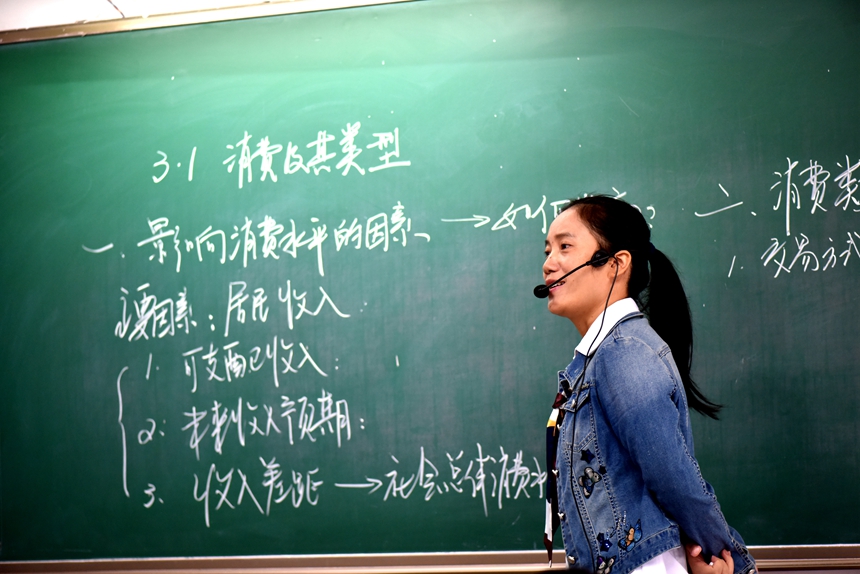 3.1 消费及其类型
一、影响消费水平的因素 → 如何
主要因素：居民收入
1. 可支配收入：
2. 未来收入预期：
3. 收入差距 → 社会总体消费水
二、消费类
1. 交易方式